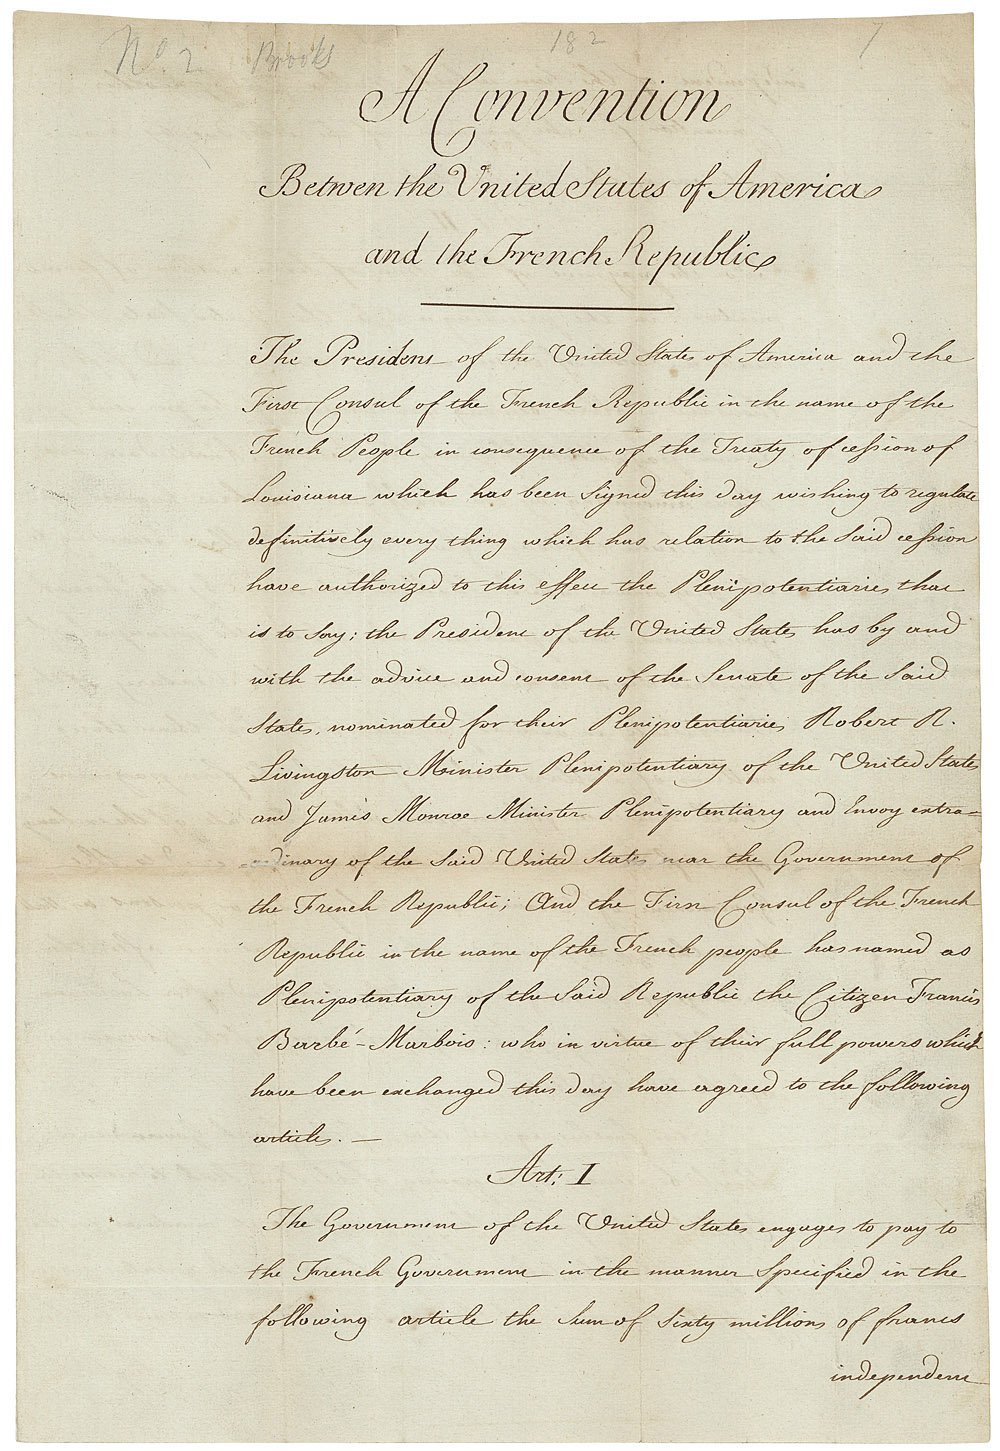 No. 2 Brooks 182 7
A Convention
Betwen the United States of America
and the French Republic
The President of the United States of America and the
First Consul of the French Republic in the name of the
French People in consequence of the Treaty of cession of
Louisiana which has been Signed this day wishing to regulate
definitively every thing which has relation to the Said cession
have authorized to this effect the Plenipotentiaries that
is to Say: the President of the United States has by and
with the advice and consent of the Senate of the Said
States, nominated for their Plenipotentiaries Robert R.
Livingston Minister Plenipotentiary of the United States
and James Monroe Minister Plenipotentiary and Envoy extra-
-ordinary of the Said United States near the Government of
the French Republic; And the First Consul of the French
Republic in the name of the French people has named as
Plenipotentiary of the Said Republic the Citizen Francis
Barbé-Marbois: who in virtue of their full powers which
have been exchanged this day have agreed to the following
articles. —
Art: I
The Government of the United States engages to pay to
the French Government in the manner Specified in the
following article the Sum of Sixty millions of francs
independent